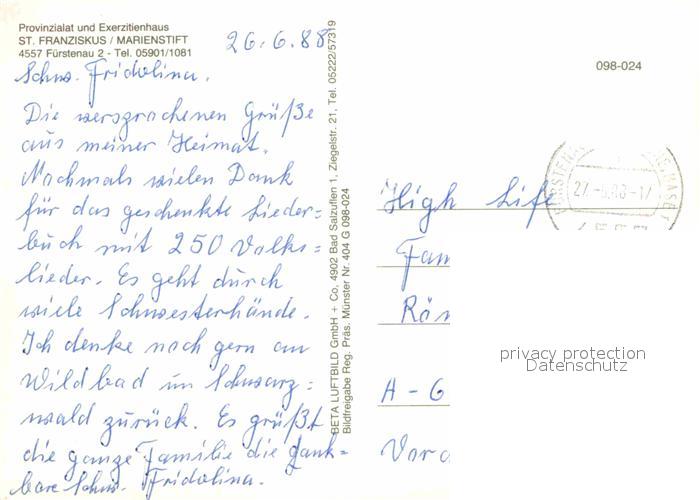 Provinzialat und Exerzitienhaus
ST. FRANZISKUS / MARIENSTIFT
4557 Fürstenau 2 - Tel. 05901/1081
26.6.88
Schw. Fridolina.
Die versprochenen Grüße
aus meiner Heimat.
Nochmals vielen Dank
für das geschenkte Lieder=
buch mit 250 Volks=
lieder. Es geht durch
viele Schwesterhände.
Ich denke noch gern an
Wildbad im Schwarz=
wald zurück. Es grüßt
die ganze Familie die dank=
bare Schw. Fridolina.
BETA LUFTBILD GmbH + Co. 4902 Bad Salzuflen 1, Ziegelstr. 21, Tel. 05222/57319
Bildfreigabe Reg. Präs. Münster Nr. 404 G 098-024
098-024
27.-6.88-17
High Life
Fam
Rön
A - 6
Vora
privacy protection
Datenschutz